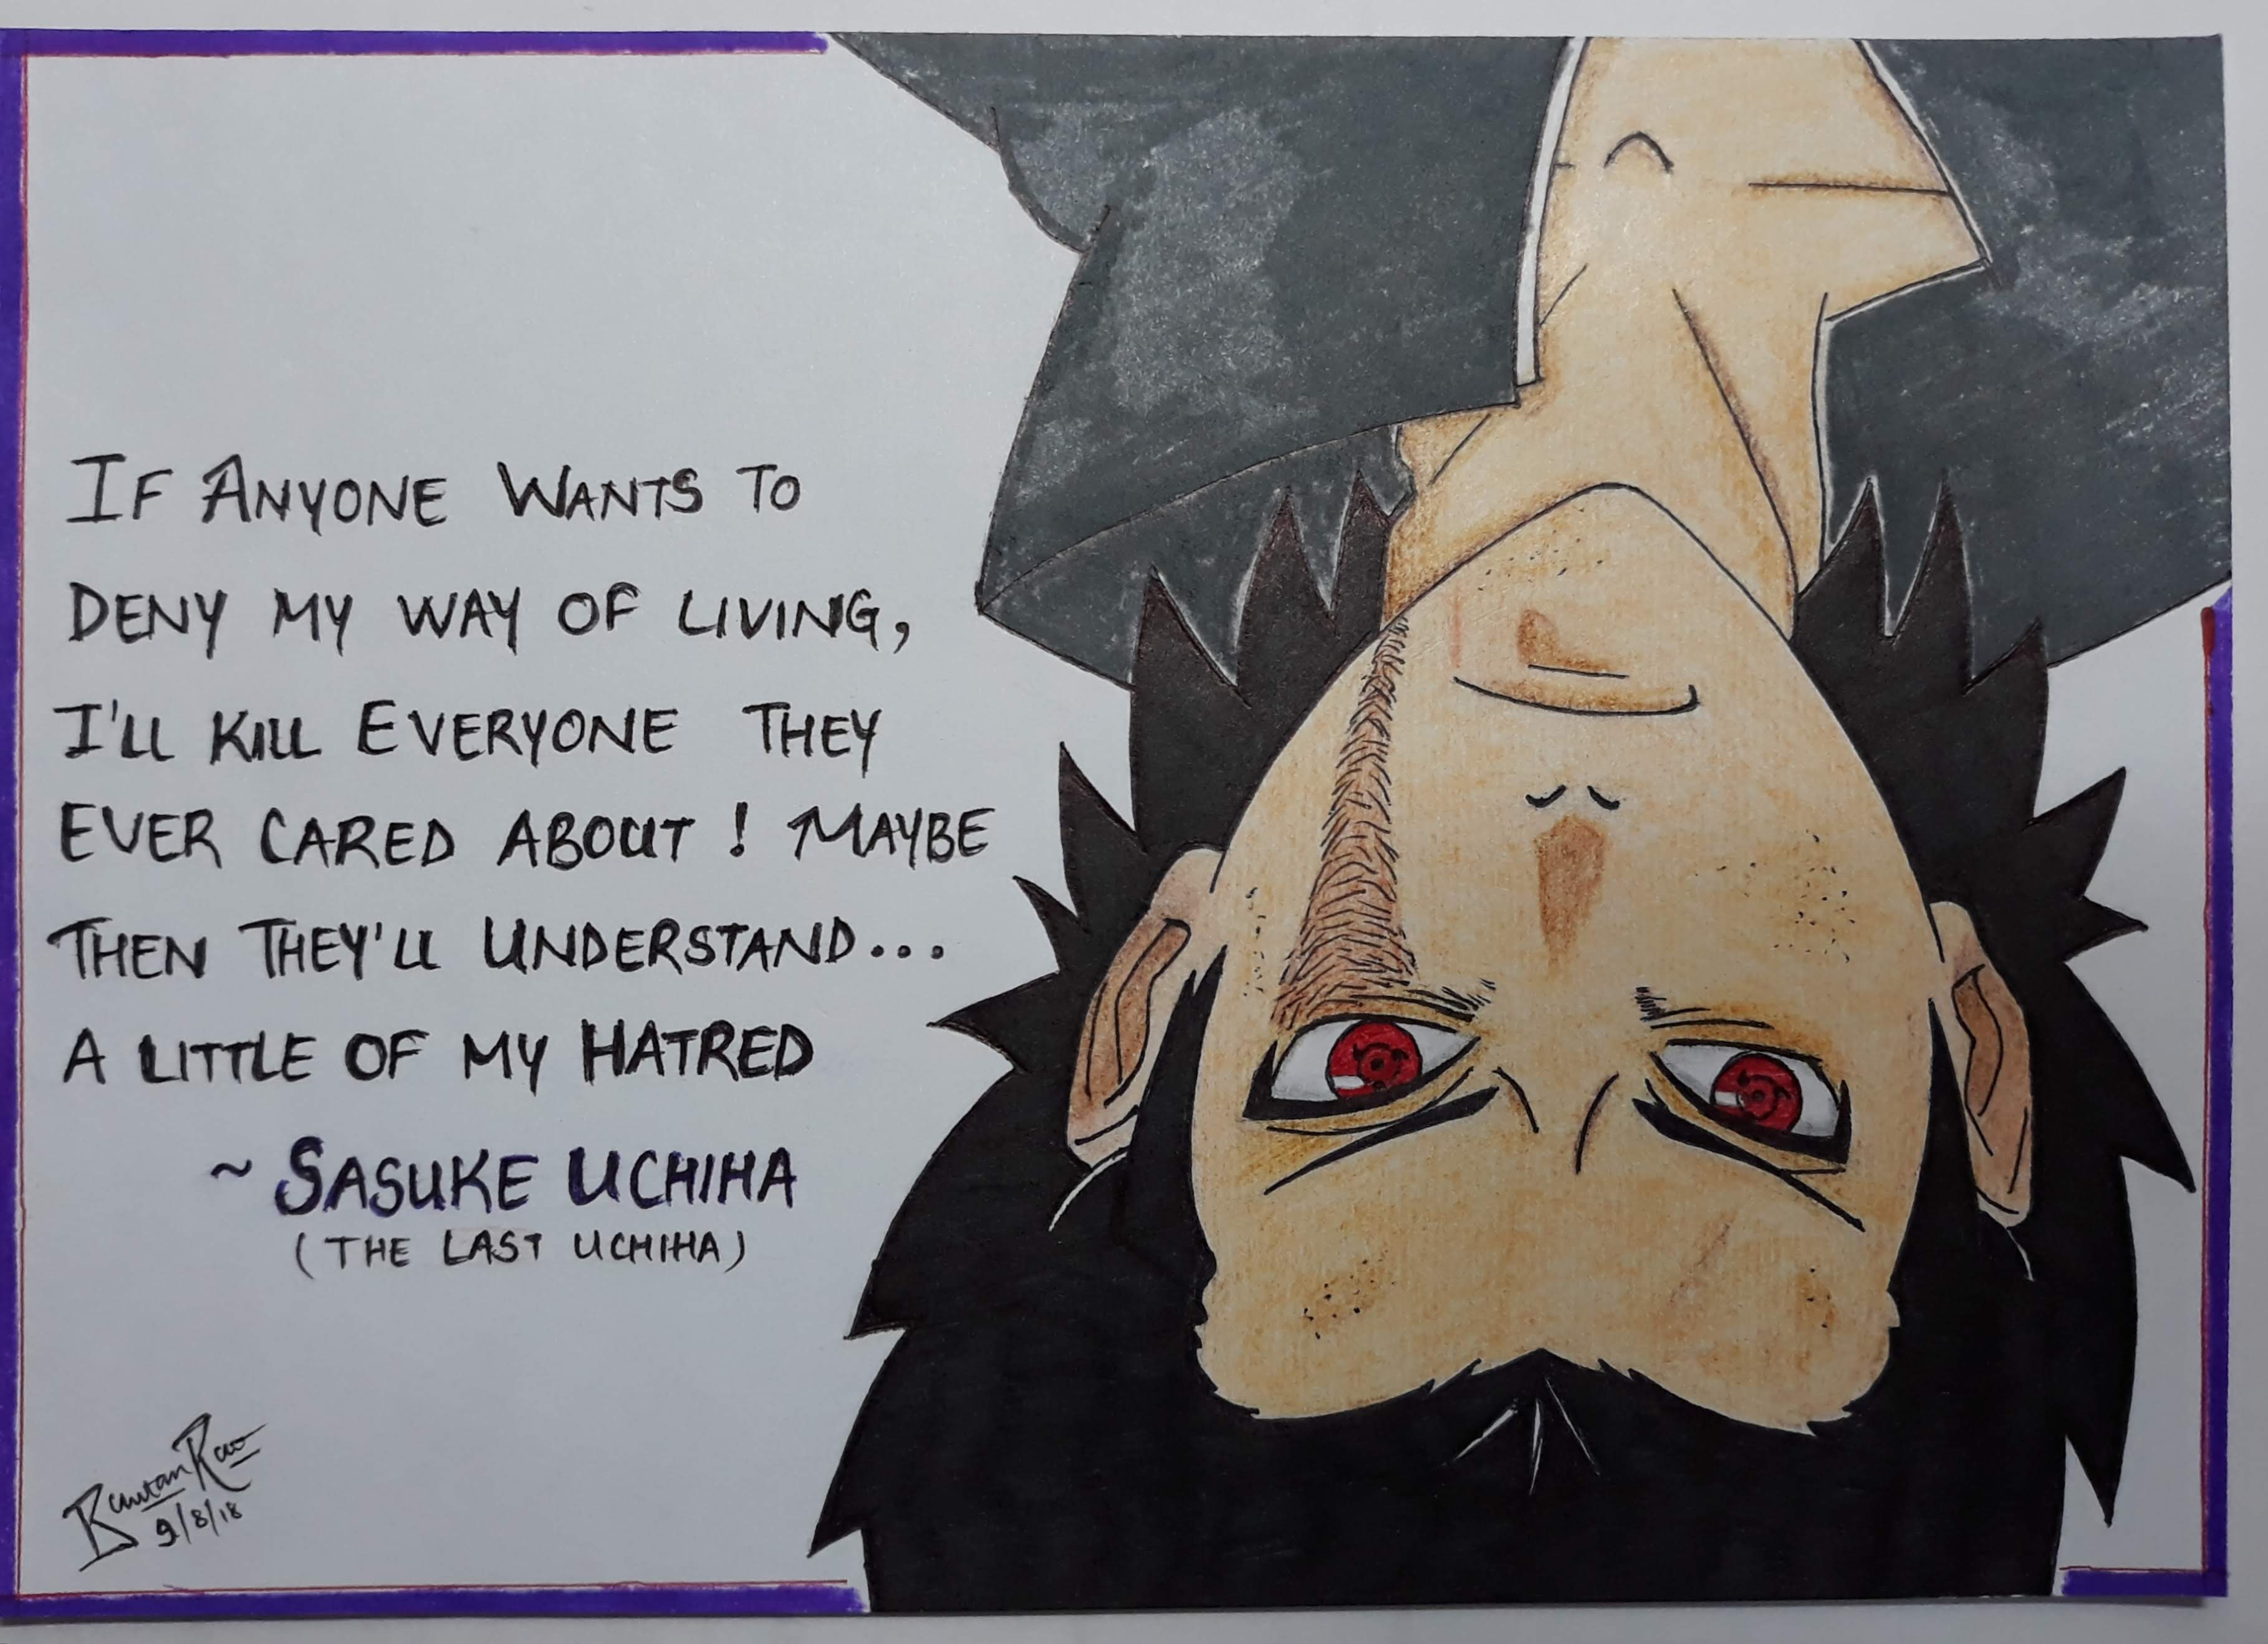 IF ANYONE WANTS TO
DENY MY WAY OF LIVING,
I'LL KILL EVERYONE THEY
EVER CARED ABOUT! MAYBE
THEN THEY'LL UNDERSTAND...
A LITTLE OF MY HATRED
~ SASUKE UCHIHA
(THE LAST UCHIHA)
Rao
9/8/18